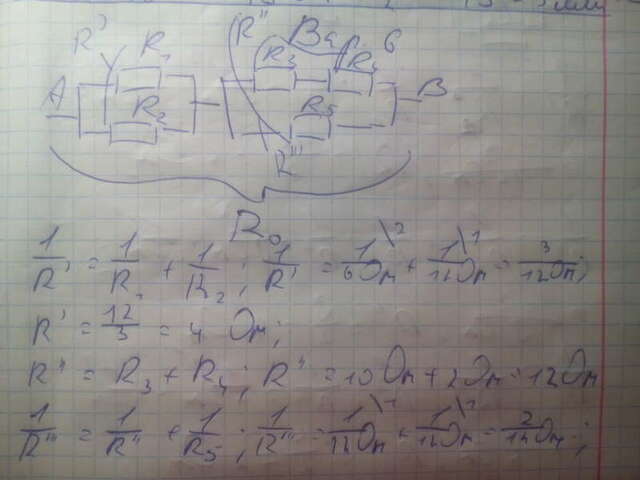 R' R₁ R'' Вар. 6
R₃ R₄
A R₂ R₅ B
R'''
R₀
1/R' = 1/R₁ + 1/R₂; 1/R' = 1\²/6Ом + 1\¹/12Ом = 3/12Ом;
R' = 12/3 = 4 Ом;
R'' = R₃ + R₄; R'' = 10Ом + 2Ом = 12Ом
1/R''' = 1/R'' + 1/R₅; 1/R''' = 1\¹/12Ом + 1\¹/12Ом = 2/12Ом;